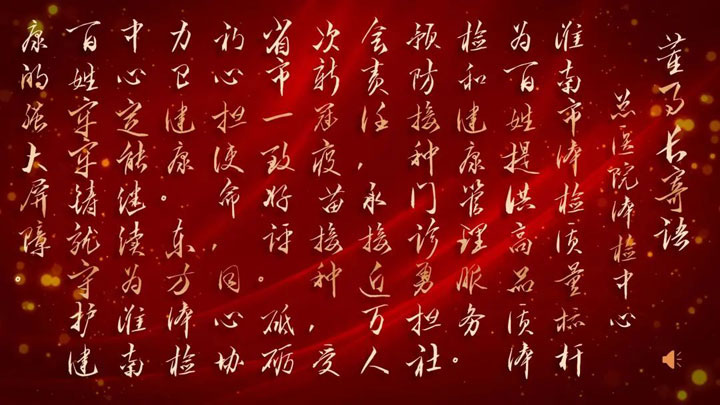 董事长寄语
总医院体检中心
淮南市体检质量标杆
为百姓提供高品质体
检和健康管理服务。
预防接种门诊勇担社
会责任，承接近万人
次新冠疫苗接种，受
省市一致好评。砥砺
初心担使命，同心协
力卫健康。东方体检
中心定能继续为淮南
百姓牢牢铸就守护健
康的强大屏障。